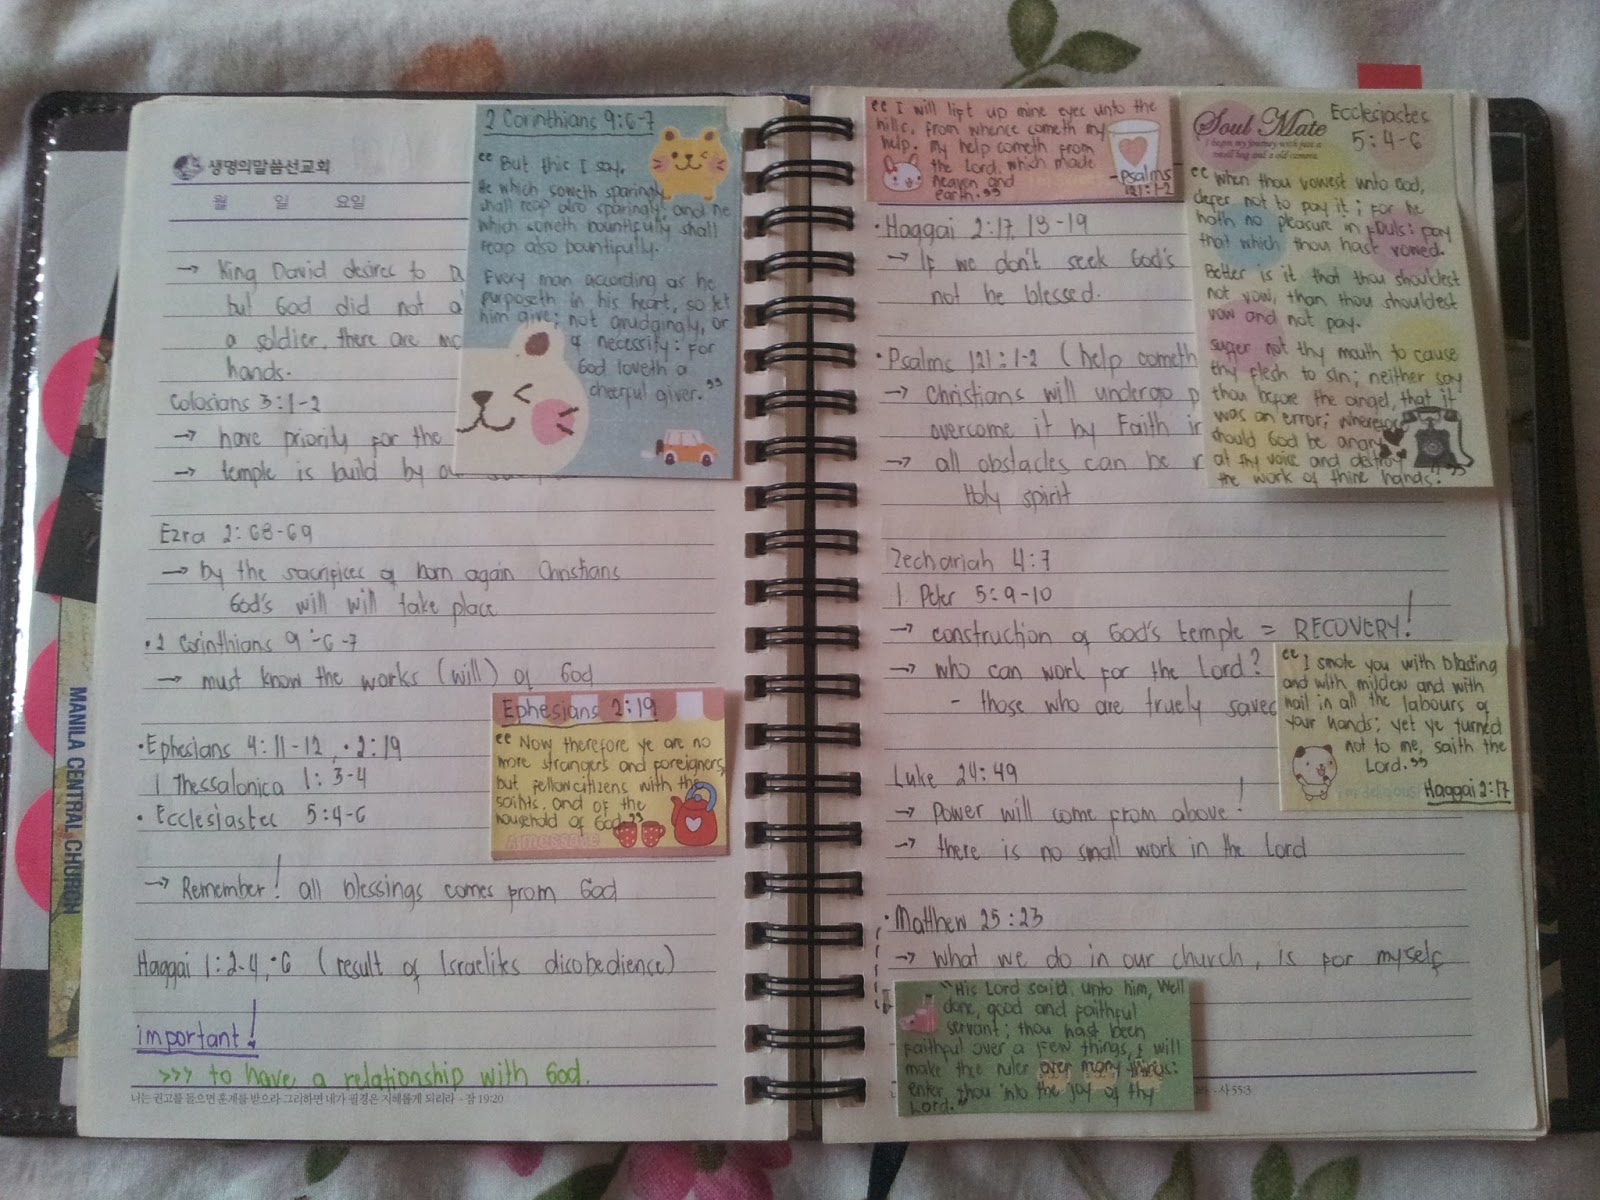 생명의말씀선교회
월 일 요일
→ King David desires to
but God did not a
a soldier, there are mo
hands.
Colosians 3:1-2
→ have priority for the
→ temple is build by
Ezra 2:68-69
→ by the sacrifices of born again Christians
God's will will take place
• 2 Corinthians 9:6-7
→ must know the works (will) of God
• Ephesians 4:11-12, • 2:19
1 Thessalonica 1:3-4
• Ecclesiastes 5:4-6
→ Remember! all blessings comes from God
Haggai 1:2-4, • 6 (result of Israelites disobedience)
important!
>>> to have a relationship with God.
너는 권고를 들으며 훈계를 받으라 그리하면 네가 필경은 지혜롭게 되리라 - 잠 19:20
2 Corinthians 9:6-7
"But this I say,
He which soweth sparingly
shall reap also sparingly; and he
which soweth bountifully shall
reap also bountifully.
Every man according as he
purposeth in his heart, so let
him give; not grudgingly, or
of necessity: for
God loveth a
cheerful giver."
Ephesians 2:19
"Now therefore ye are no
more strangers and foreigners,
but fellowcitizens with the
saints, and of the
household of God"
MANILA CENTRAL CHURCH
"I will lift up mine eyes unto the
hills, from whence cometh my
help. my help cometh from
the Lord, which made
heaven and
earth."
- Psalms
121:1-2
• Haggai 2:17, 18-19
→ If we don't seek God's
not be blessed.
• Psalms 121:1-2 (help cometh
→ Christians will undergo p
overcome it by Faith in
→ all obstacles can be r
Holy spirit
Zechariah 4:7
1 Peter 5:9-10
→ construction of God's temple = RECOVERY!
→ who can work for the Lord?
- those who are truely saved
Luke 24:49
→ Power will come from above!
→ there is no small work in the Lord
• Matthew 25:23
→ what we do in our church, is for myself
- 사 55:3
Soul Mate
I begin my journey with just a
small bag and a old camera.
Ecclesiastes
5:4-6
"When thou vowest unto God,
defer not to pay it; for he
hath no pleasure in fouls: pay
that which thou hast vowed.
Better is it that thou shouldest
not vow, than thou shouldest
vow and not pay.
suffer not thy mouth to cause
thy flesh to sin; neither say
thou before the angel, that it
was an error; wherefore
should God be angry
at thy voice and destroy
the work of thine hands?"
"I smote you with blasting
and with mildew and with
hail in all the labours of
your hands; yet ye turned
not to me, saith the
Lord."
Haggai 2:17
"His Lord said, unto him, Well
done, good and faithful
servant; thou hast been
faithful over a few things, I will
make thee ruler over many things:
enter thou into the joy of thy
Lord."